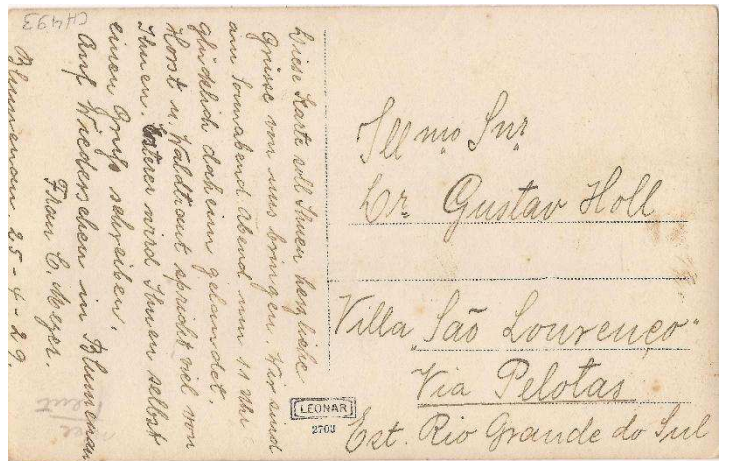 Diese Karte soll Ihnen herzliche
Grüsse von uns bringen. Wir sind
am Sonnabend Abend um 11 Uhr
glücklich daheim gelandet.
Horst u. Waldtraut spricht viel von
Ihnen. Esterer wird Ihnen selbst
einen Gruß schreiben.
Auf Wiedersehen in Blumenau
Frau C. Meyer.
Blumenau, 25-4-29.
Illmo Snr
Dr. Gustav Holl
Villa „São Lourenço"
Via Pelotas
Est. Rio Grande do Sul
LEONAR
2703
CH493